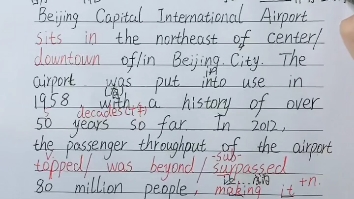 Beijing Capital International Airport
sits in the northeast of center/
downtown of/in Beijing City. The
airport was put into use in
1958, with a history of over
decades(十)
50 years so far. In 2012,
the passenger throughput of the airport
-sub-
topped/ was beyond/ surpassed
80 million people, making it +n.